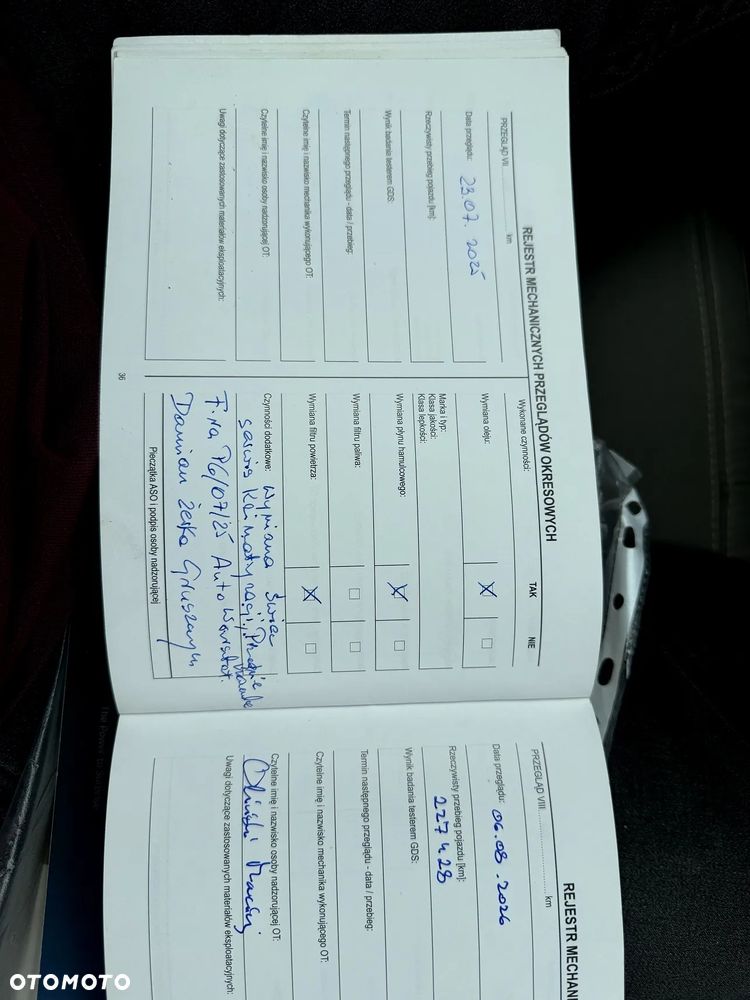 REJESTR MECHANICZNYCH PRZEGLĄDÓW OKRESOWYCH
PRZEGLĄD VII ........... km
Data przeglądu: 23.07. 2025
Rzeczywisty przebieg pojazdu [km]:
Wynik badania testerem GDS:
Termin następnego przeglądu - data / przebieg:
Czytelne imię i nazwisko mechanika wykonującego OT:
Czytelne imię i nazwisko osoby nadzorującej OT:
Uwagi dotyczące zastosowanych materiałów eksploatacyjnych:
36
Wykonane czynności: TAK NIE
Wymiana oleju:
Marka i typ:
Klasa jakości:
Klasa lepkości:
Wymiana płynu hamulcowego:
Wymiana filtru paliwa:
Wymiana filtru powietrza:
Czynności dodatkowe: Wymiana świec
serwis klimatyzacji,
F.Na 76/07/25 Auto Warsztat.
Damian
Pieczątka ASO i podpis osoby nadzorującej
REJESTR MECHANI
PRZEGLĄD VIII ........... km
Data przeglądu: 06.08.2026
Rzeczywisty przebieg pojazdu [km]:
227428
Wynik badania testerem GDS:
Termin następnego przeglądu - data / przebieg:
Czytelne imię i nazwisko mechanika wykonującego OT:
Czytelne imię i nazwisko osoby nadzorującej OT:
Maciej
Uwagi dotyczące zastosowanych materiałów eksploatacyjnych:
OTOMOTO